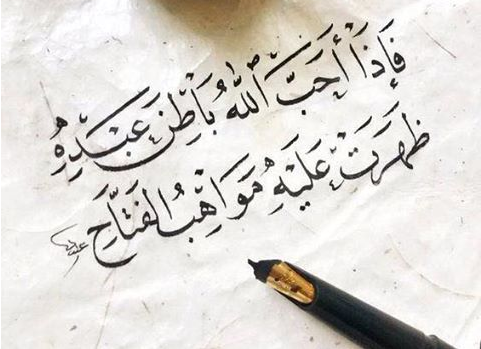 فَإِذَا أَحَبَّ اللهُ بَاطِنَ عَبْدِهِ
ظَهَرَتْ عَلَيْهِ مَوَاهِبُ الفَتَّاحِ